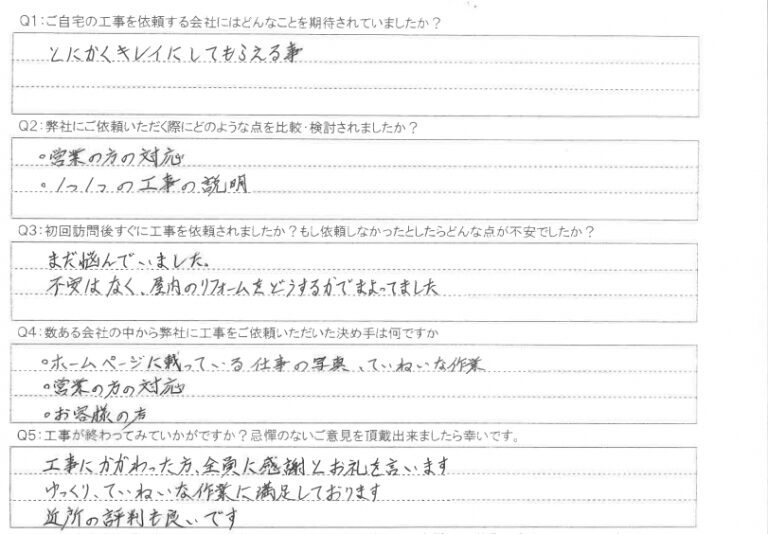 Q1:ご自宅の工事を依頼する会社にはどんなことを期待されていましたか?
とにかくキレイにしてもらえる事
Q2:弊社にご依頼いただく際にどのような点を比較・検討されましたか?
。営業の方の対応
。1つ1つの工事の説明
Q3:初回訪問後すぐに工事を依頼されましたか?もし依頼しなかったとしたらどんな点が不安でしたか?
まだ悩んでいました。
不安はなく、屋内のリフォームをどうするかでまよってました
Q4:数ある会社の中から弊社に工事をご依頼いただいた決め手は何ですか
。ホームページに載っている仕事の写真、ていねいな作業
。営業の方の対応
。お客様の声
Q5:工事が終わってみていかがですか?忌憚のないご意見を頂戴出来ましたら幸いです。
工事にかかわった方、全員に感謝とお礼を言います
ゆっくり、ていねいな作業に満足しております
近所の評判も良いです